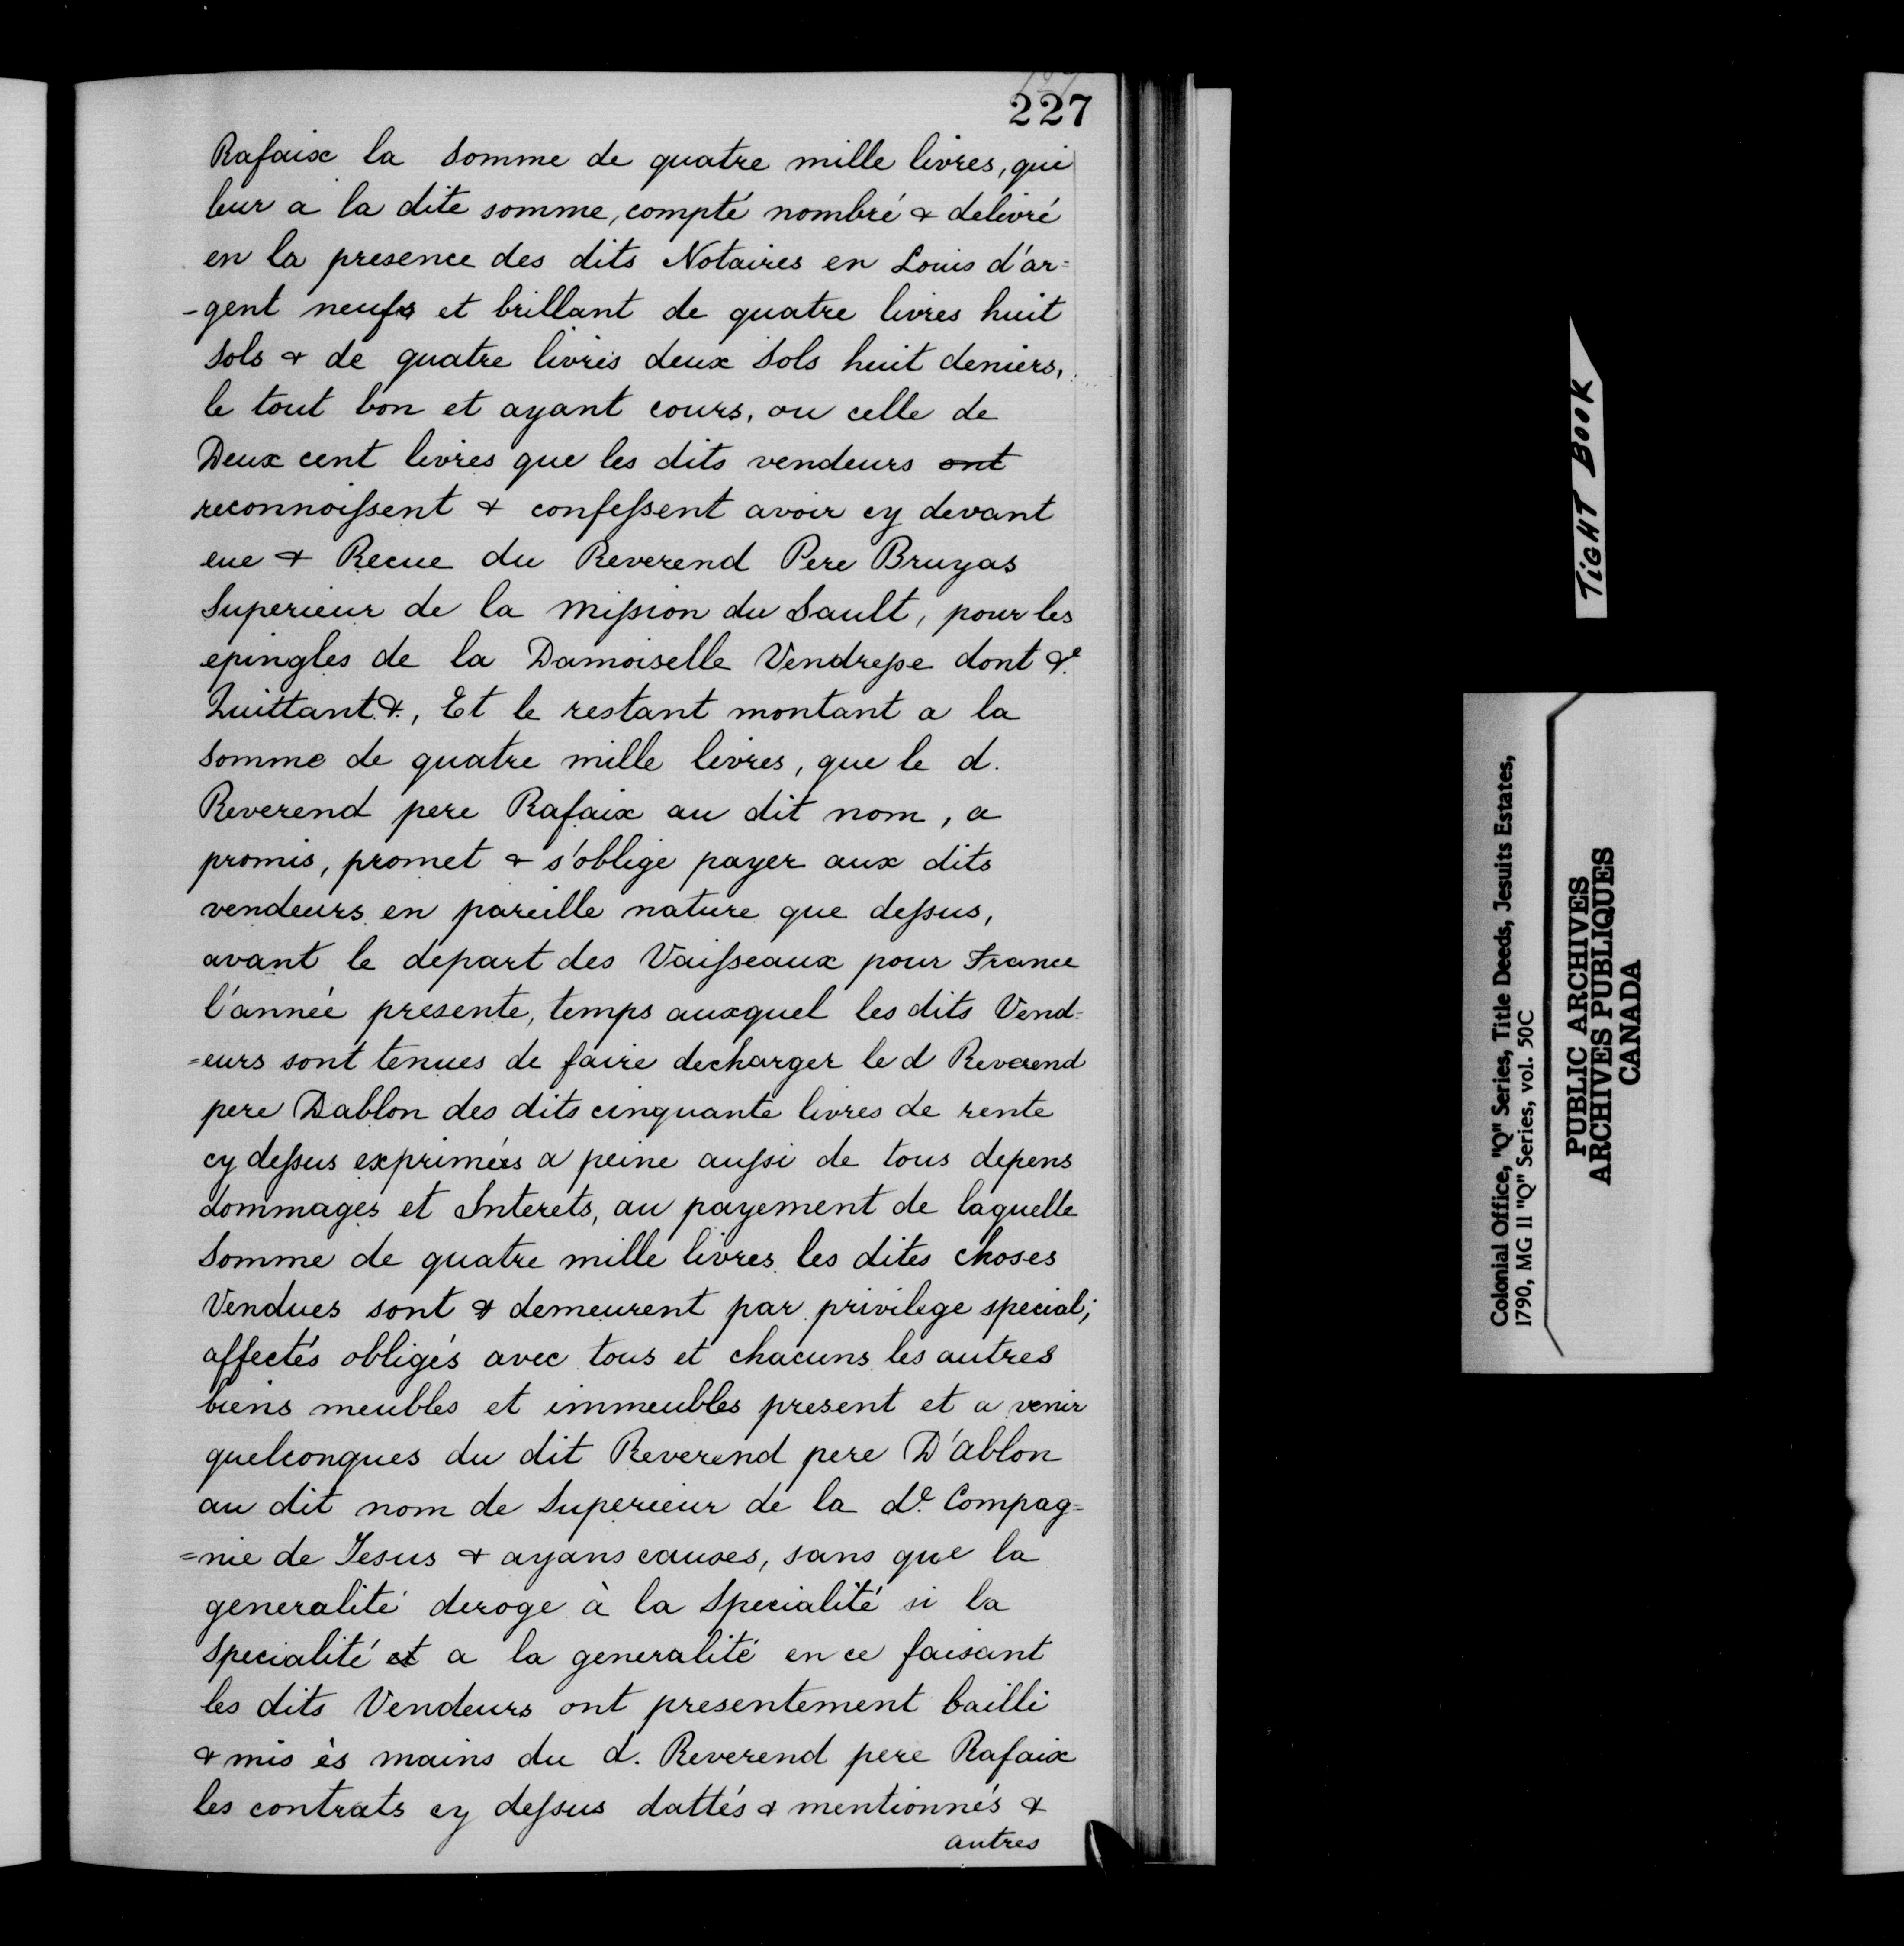 227
Rafaix la somme de quatre mille livres, qui
leur a la dite somme, compté nombré & delivré
en la presence des dits Notaires en Louis d'ar=
-gent neufs et brillant de quatre livres huit
sols & de quatre livres deux sols huit deniers,
le tout bon et ayant cours, ou celle de
Deux cent livres que les dits vendeurs ont
reconnoissent & confessent avoir cy devant
eue & Recue du Reverend Pere Bruyas
Superieur de la mission du Sault, pour les
epingles de la Damoiselle Vendresse dont &e.
Quittant &., Et le restant montant a la
somme de quatre mille livres, que le d.
Reverend pere Rafaix au dit nom, a
promis, promet & s'oblige payer aux dits
vendeurs en pareille nature que dessus,
avant le depart des Vaisseaux pour France
l'année presente, temps auxquel les dits Vend=
=eurs sont tenues de faire decharger le d Reverend
pere Dablon des dits cinquante livres de rente
cy dessus exprimées a peine aussi de tous depens
dommages et Interets, au payement de laquelle
somme de quatre mille livres les dites choses
Vendues sont & demeurent par privilege special;
affectés obligés avec tous et chacuns les autres
biens meubles et immeubles present et a venir
quelconques du dit Reverend pere D'ablon
au dit nom de Superieur de la de. Compag=
=nie de Jesus & ayans causes, sans que la
generalité deroge à la Specialité si la
Specialité et a la generalité en ce faisant
les dits Vendeurs ont presentement bailli
& mis ès mains du d. Reverend pere Rafaix
les contrats cy dessus dattés & mentionnés &
autres
TIGHT BOOK
Colonial Office, "Q" Series, Title Deeds, Jesuits Estates,
1790, MG 11 "Q" Series, vol. 50C
PUBLIC ARCHIVES
ARCHIVES PUBLIQUES
CANADA